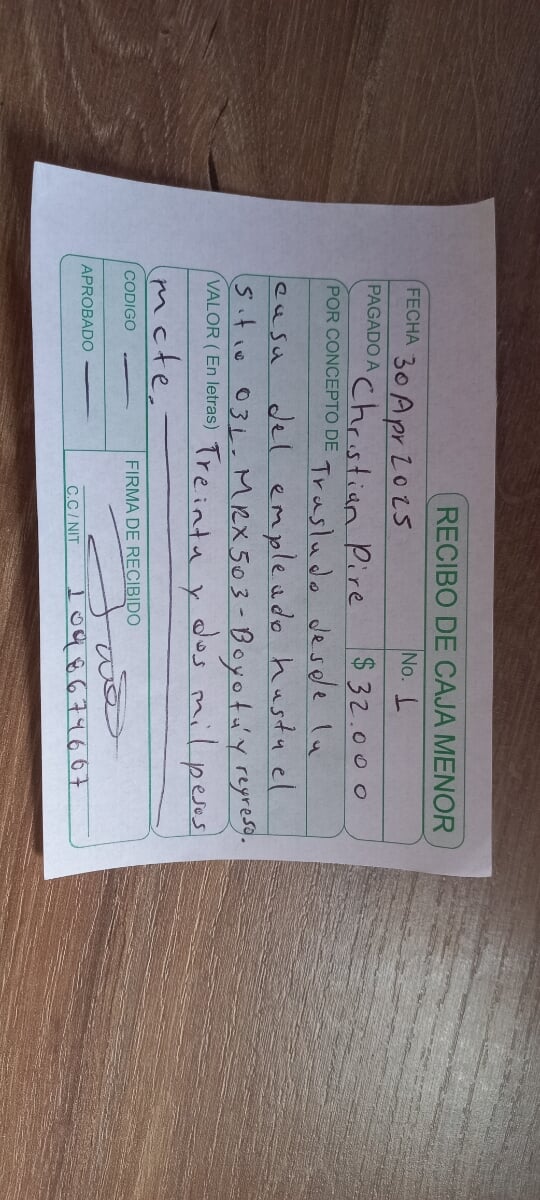 RECIBO DE CAJA MENOR
FECHA 30 Apr 2025 No. 1
PAGADO A Christian Pire $ 32.000
POR CONCEPTO DE Traslado desde la
casa del empleado hasta el
sitio 031-MRX503-Boyotá y regreso.
VALOR ( En letras) Treinta y dos mil pesos
mcte.
CODIGO — FIRMA DE RECIBIDO
APROBADO — C.C / NIT 1098674667